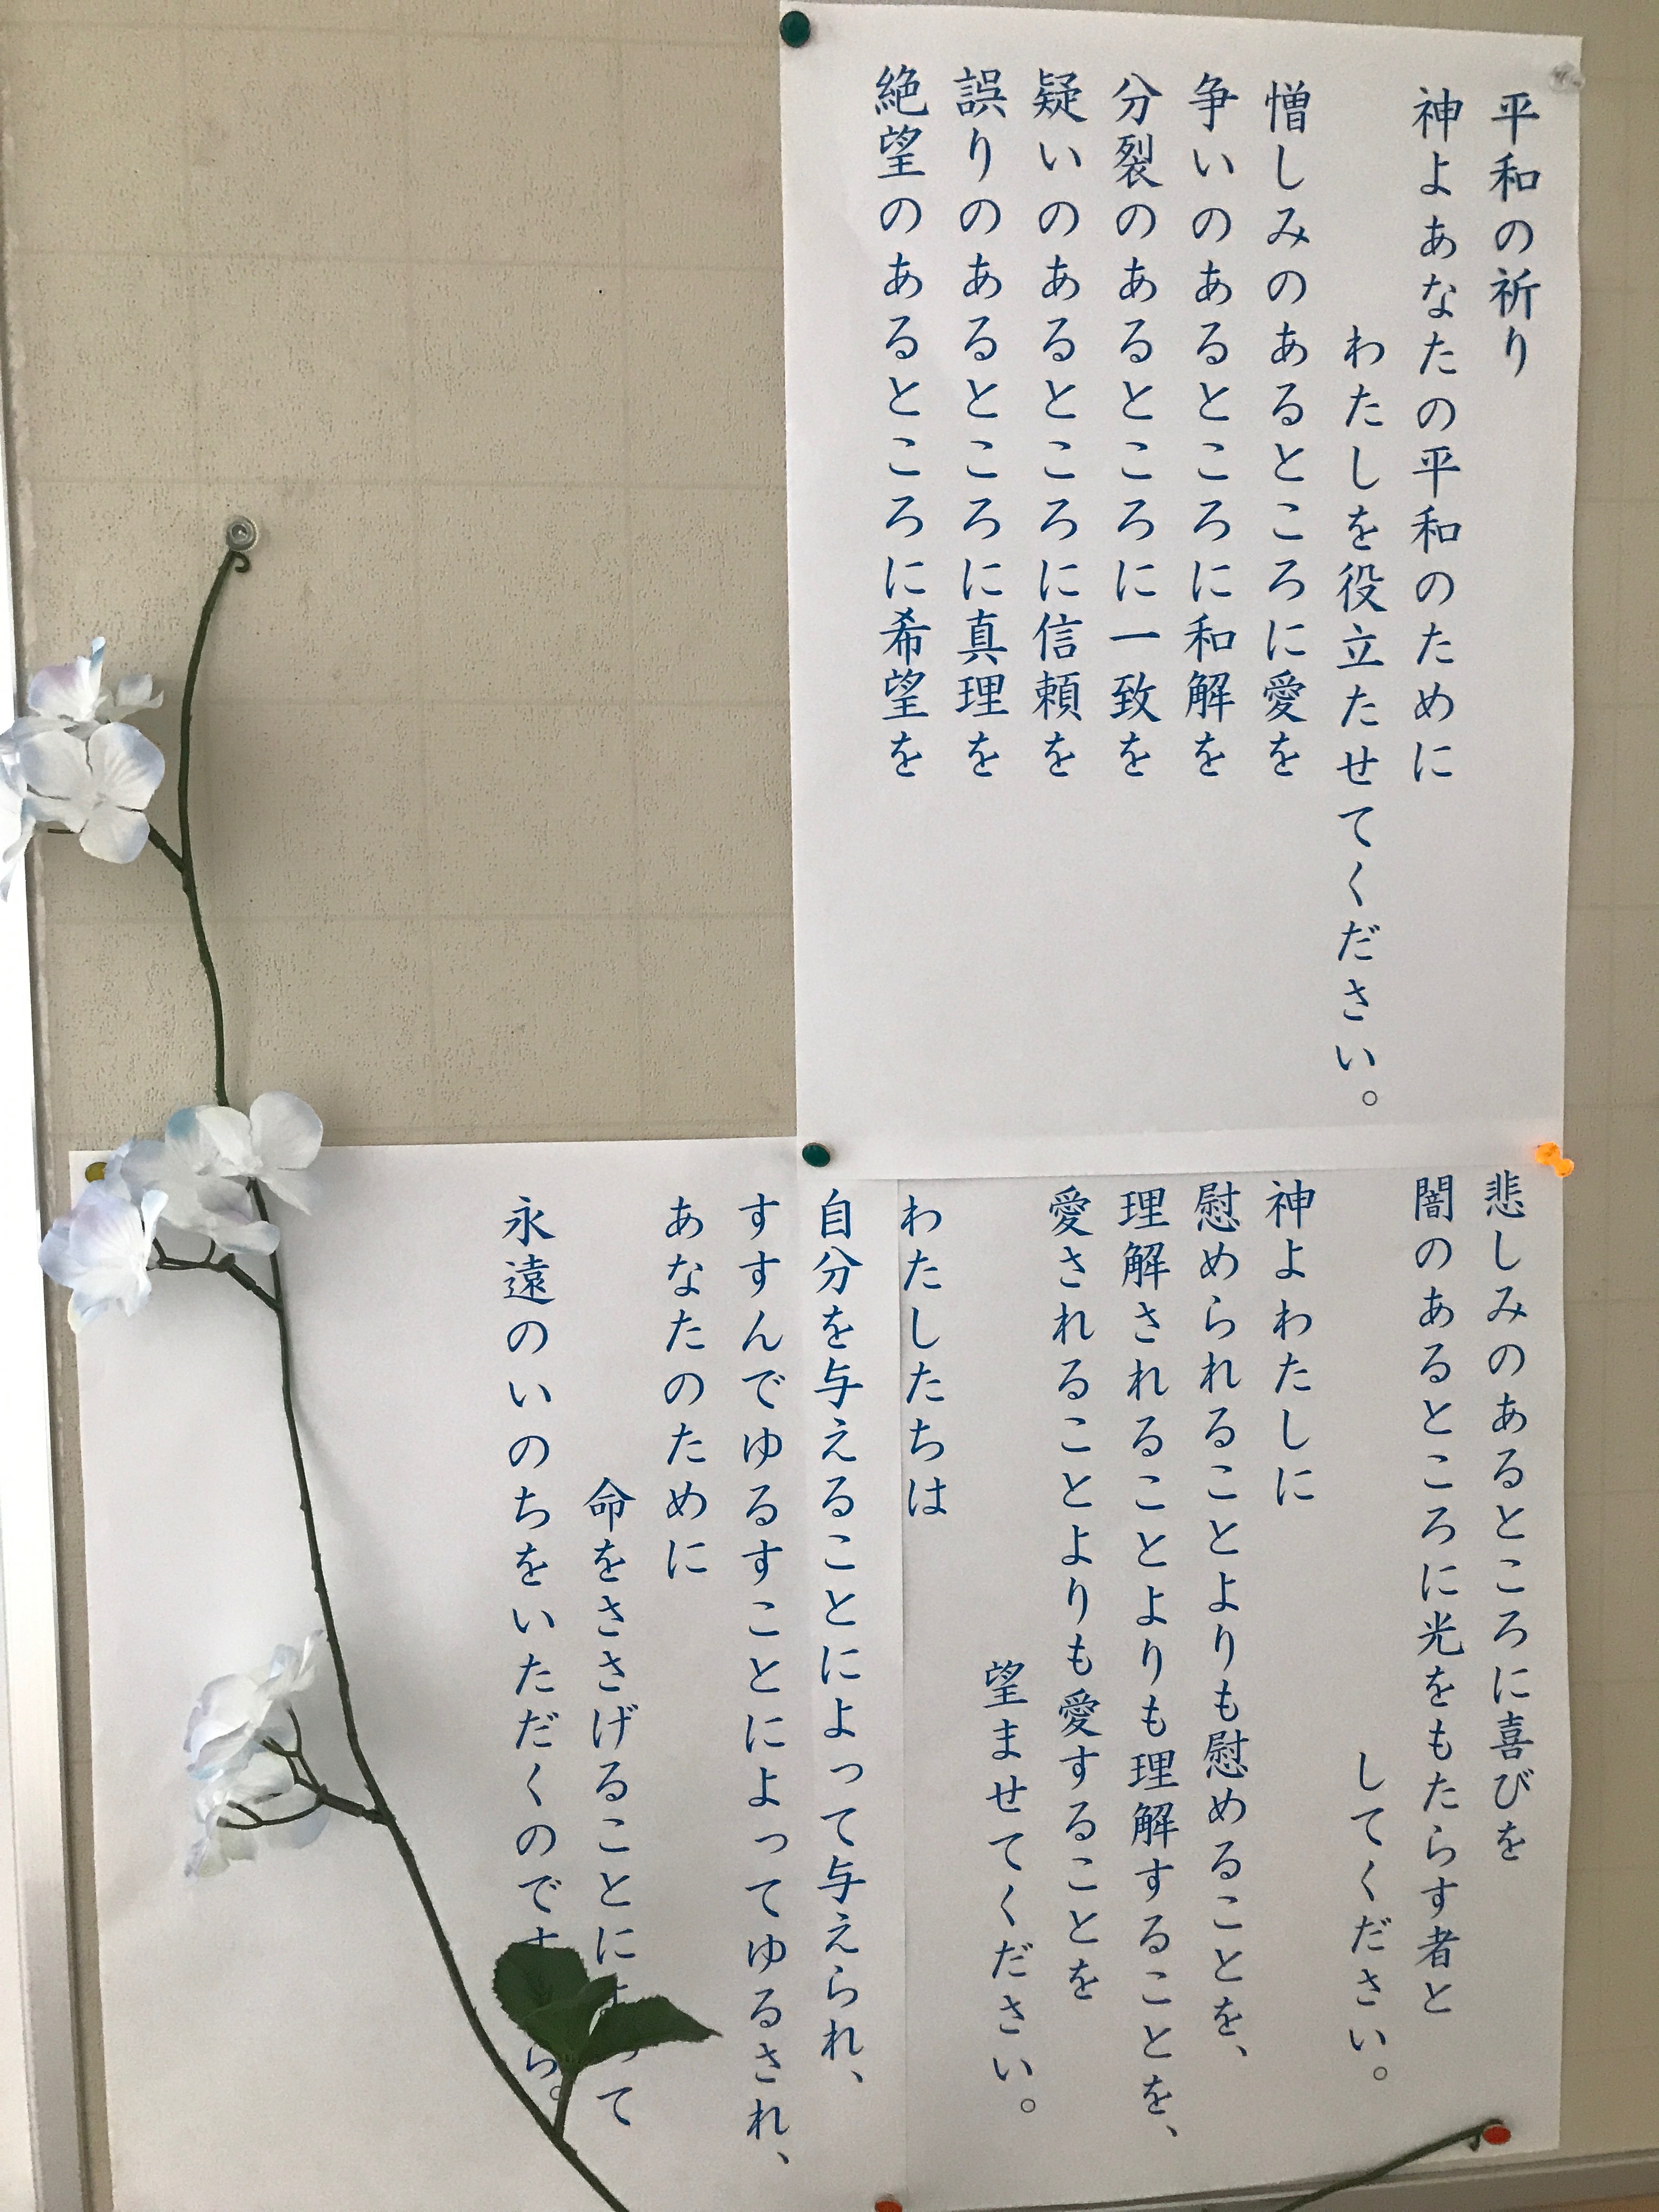 平和の祈り
神よあなたの平和のために
わたしを役立たせてください。
憎しみのあるところに愛を
争いのあるところに和解を
分裂のあるところに一致を
疑いのあるところに信頼を
誤りのあるところに真理を
絶望のあるところに希望を
悲しみのあるところに喜びを
闇のあるところに光をもたらす者と
してください。
神よわたしに
慰められることよりも慰めることを、
理解されることよりも理解することを、
愛されることよりも愛することを
望ませてください。
わたしたちは
自分を与えることによって与えられ、
すすんでゆるすことによってゆるされ、
あなたのために
命をささげることによって
永遠のいのちをいただくのですら。